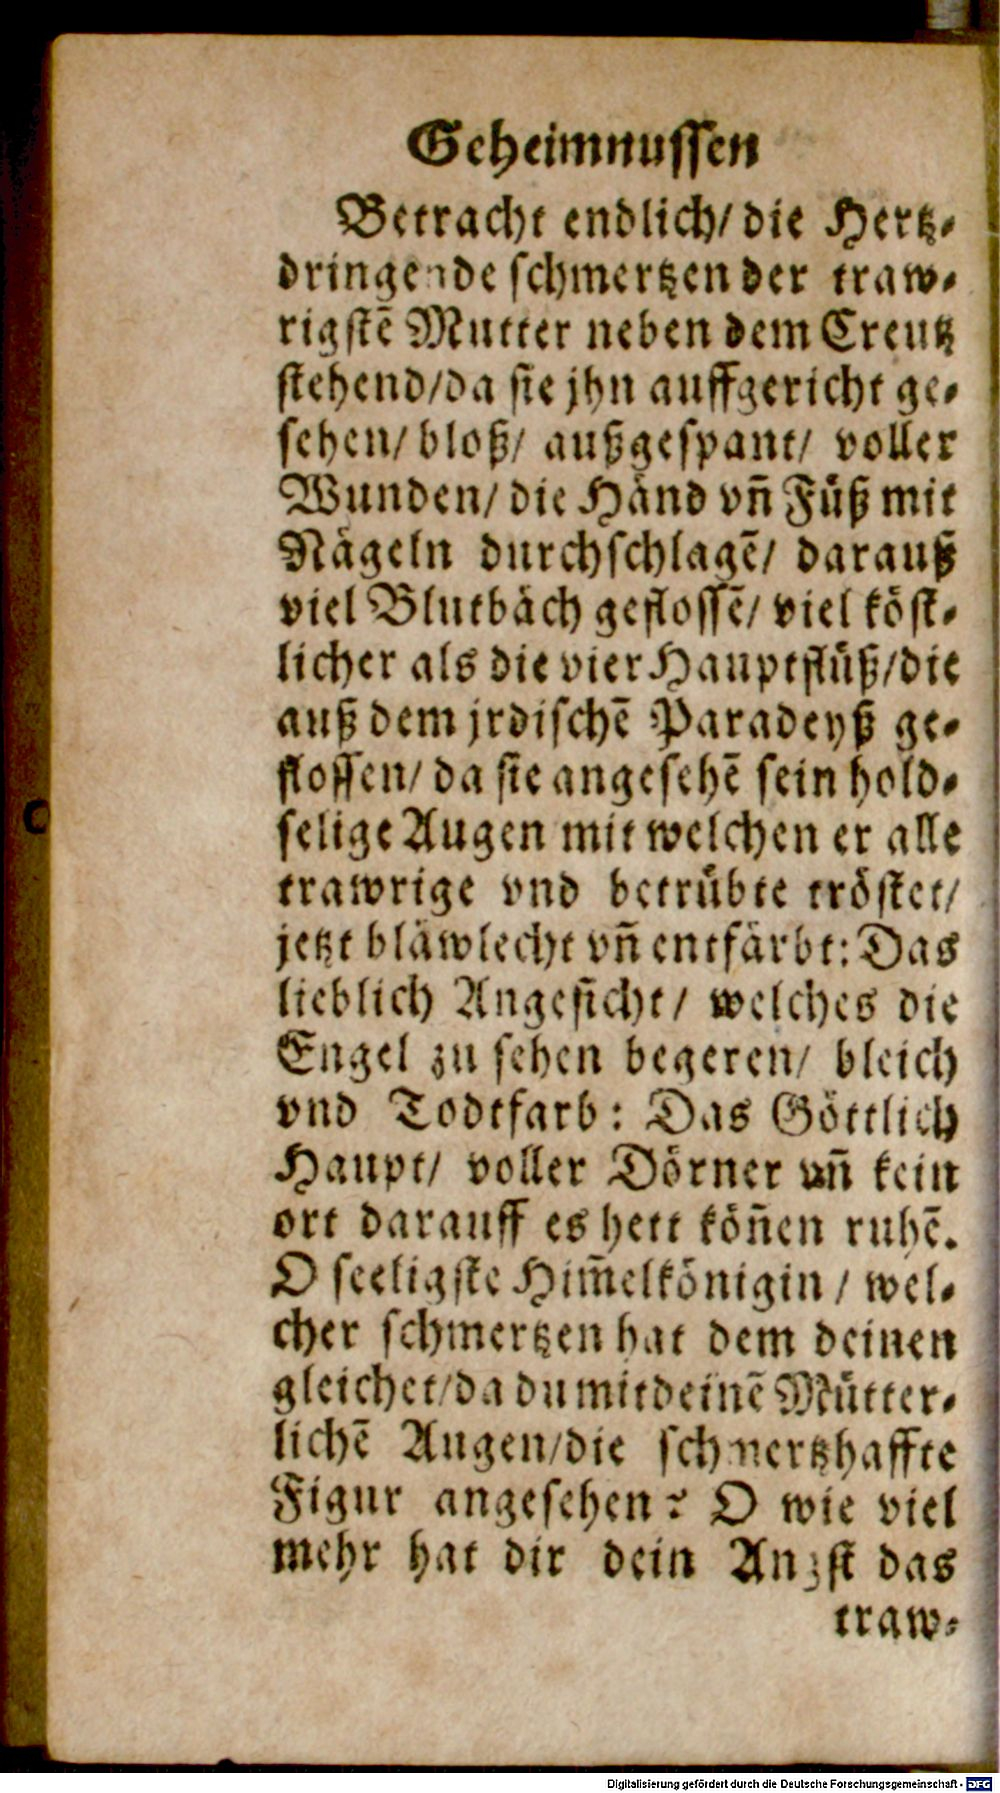 Geheimnussen
Betracht endlich/ die Hertz-
dringende schmertzen der traw-
rigstē Mutter neben dem Creutz
stehend/da sie jhn auffgericht ge-
sehen/ bloß/ außgespant/ voller
Wunden/ die Händ vn̄ Füß mit
Nägeln durchschlagē/ darauß
viel Blutbäch geflossē/ viel köst-
licher als die vier Hauptflüß/die
auß dem jrdischē Paradeyß ge-
flossen/ da sie angesehē sein hold-
selige Augen mit welchen er alle
trawrige vnd betrübte tröstet/
jetzt bläwlecht vn̄ entfärbt: Das
lieblich Angesicht/ welches die
Engel zu sehen begeren/ bleich
vnd Todtfarb: Das Göttlich
Haupt/ voller Dörner vn̄ kein
ort darauff es hett kön̄en ruhē.
O seeligste Him̄elkönigin / wel-
cher schmertzen hat dem deinen
gleichet/da du mit deinē Mütter-
lichē Augen/die schmertzhaffte
Figur angesehen? O wie viel
mehr hat dir dein Angst das
traw-
Digitalisierung gefördert durch die Deutsche Forschungsgemeinschaft - DFG